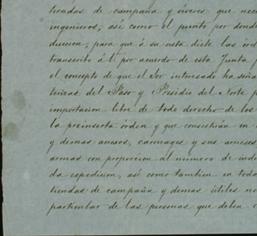 tiendas de campaña y víveres que nece
ingenieros; así como el punto por donde
duccion; para que á su vista dicte las órd
transcribo á V. por acuerdo de esta Junta p
el concepto de que el Sor interesado ha seña
del Paso y Presidio del Norte p
importacion libre de todo derecho de los
la preinserta órden y que consistirán en
y demas ausos, carruages, y sus arneses
armas con proporcion al número de indi
da espedicion, así como tambien en toda
tiendas de campaña y demas útiles ne
particular de las personas que deben c